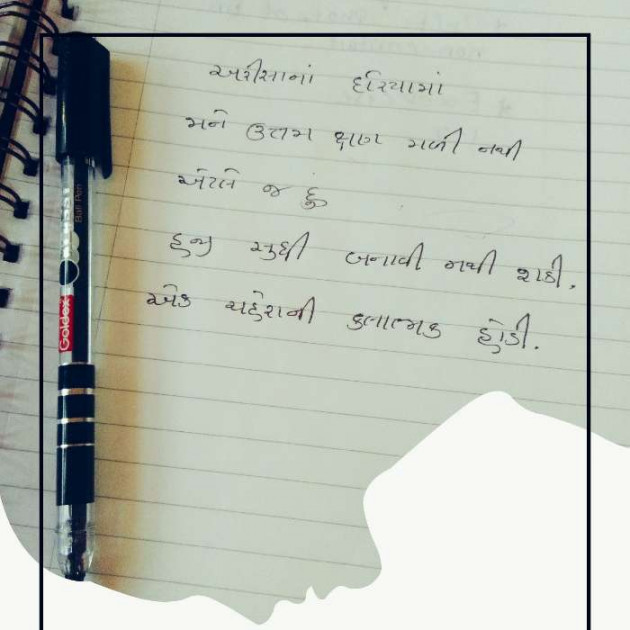 અરીસાનાં દરિયામાં
મને ઉત્તમ ક્ષણ મળી નથી
એટલે જ હું
હજી સુધી બનાવી નથી શકી.
એક ચહેરાની કલાત્મક હોડી.
Goldex
Ball Pen